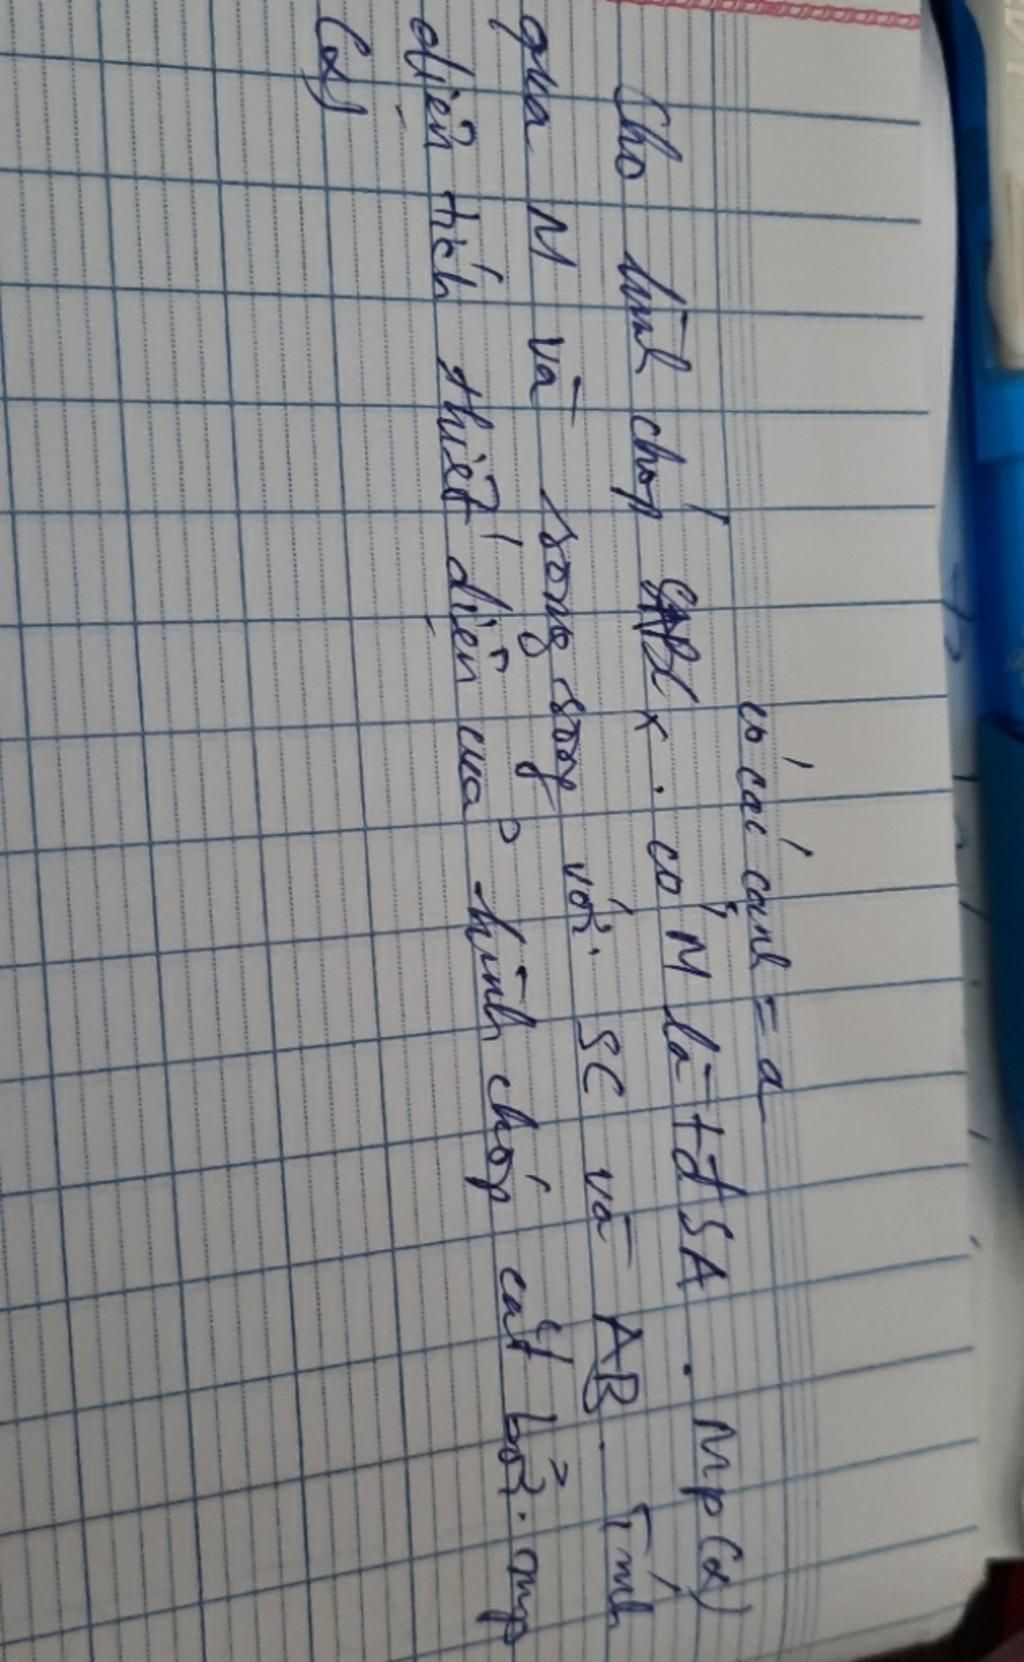 có các cạnh = a
Cho hình chóp SABC x. có M là tđ SA. Mp (α)
qua M và song song với SC và AB. Tính
diện tích thiết diện của hình chóp cắt bởi mp
(α)